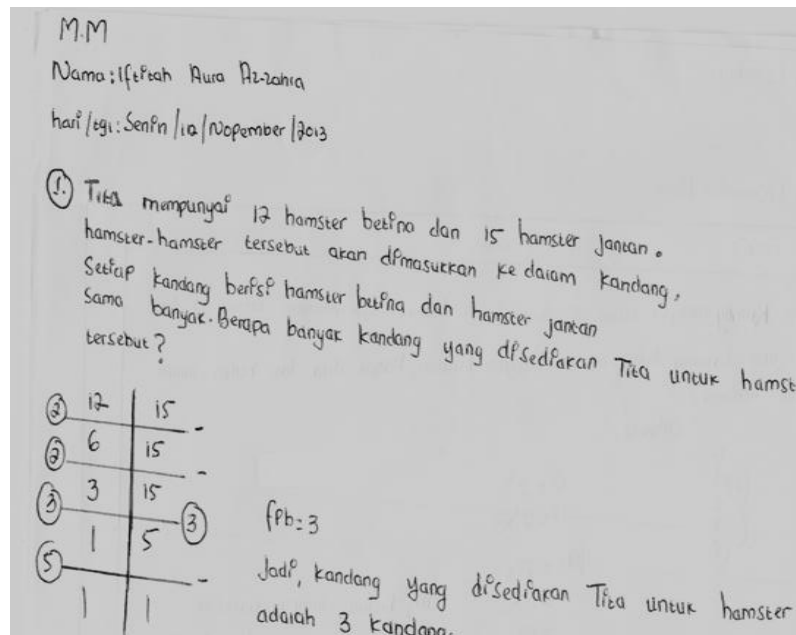 M.M
Nama: Iftitah Aura Az-zahra
hari/tgl: Senin/12/Nopember/2013
1. Tita mempunyai 12 hamster betina dan 15 hamster jantan.
hamster-hamster tersebut akan dimasukkan ke dalam kandang,
Setiap kandang berisi hamster betina dan hamster jantan
Sama banyak. Berapa banyak kandang yang disediakan Tita untuk hamst
tersebut?
2 12 15 -
2 6 15 -
3 3 15 3
1 5
5 -
1 1
fPb=3
Jadi, kandang yang disediakan Tita untuk hamster
adalah 3 kandang.